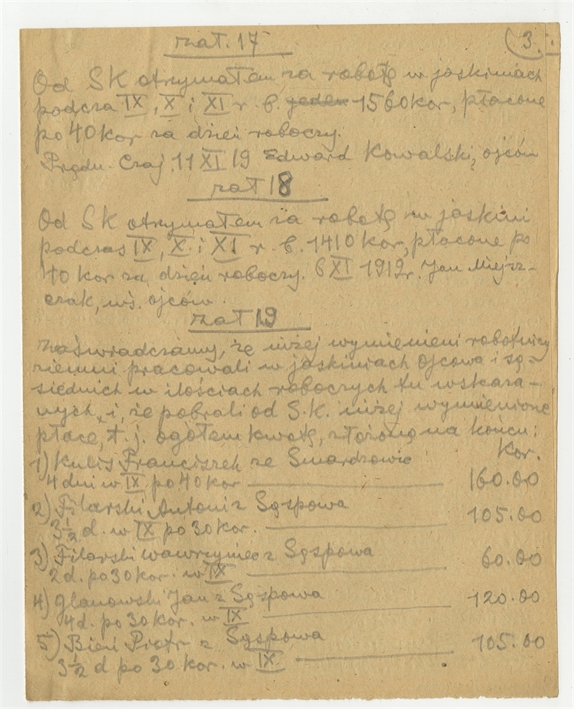 zał. 17
3.
Od SK otrymałem za robotę w jaskiniach
podcza IX, X i XI r. b. jeden 1560 kor, płacone
po 40 kor za dzień roboczy.
Prądn. Czaj. 11 XI 19 Edward Kowalski, ojców
zał 18
Od SK otrymałem za robotę w jaskini
podczas IX, X i XI r. b. 1410 kor, płacone po
40 kor za dzień roboczy. 6 XI 1912 r. Jan
czak, wś. ojców.
zał 19
zaświadczamy, że niżej wymienieni robotnicy
ziemni pracowali w jaskiniach Ojcowa i są-
siednich w ilościach roboczych tu wskaza-
nych, i, że pobrali od S.K. niżej wymienione
płace, t. j. ogółem kwotę, złożoną na końcu:
Kor.
1) Kulis Franciszek ze Smardzowic
4 dni w IX po 40 kor 160.00
2) Filarski Antoni z Sąspowa
3½ d. w IX po 30 kor. 105.00
3) Filarski Wawrzyniec z Sąspowa
2 d. po 30 kor. w IX 60.00
4) Glanowski Jan z Sąspowa
4 d. po 30 kor. w IX 120.00
5) Bień Piotr z Sąspowa
3½ d po 30 kor. w IX. 105.00